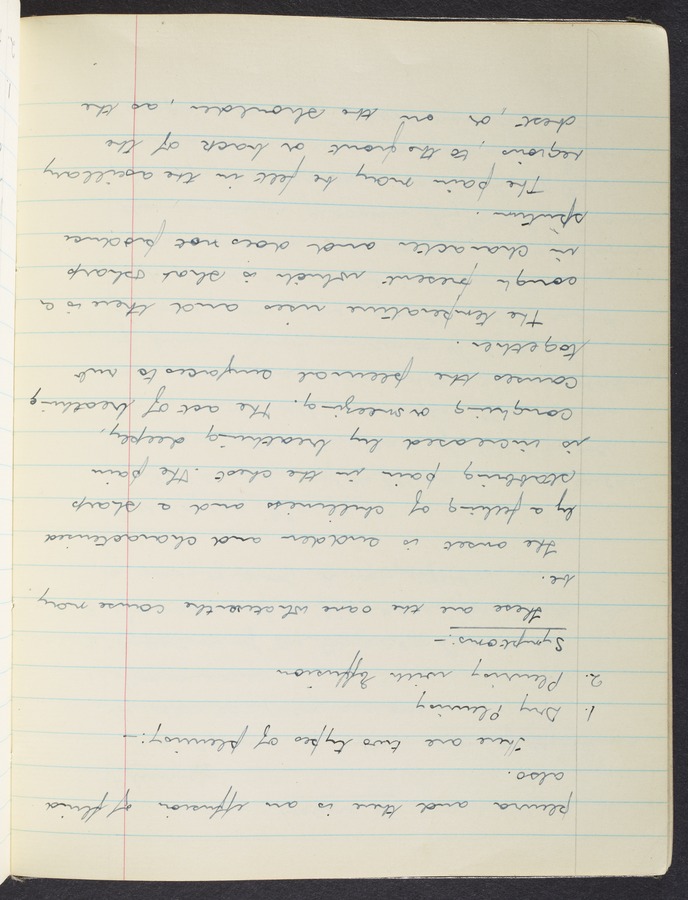 pleura and there is an effusion of fluid
also.
There are two types of pleurisy:-
1. Dry Pleurisy
2. Pleurisy with Effusion
Symptoms:-
These are the same whatever the cause may
be.
The onset is sudden and characterised
by a feeling of chilliness and a sharp
stabbing pain in the chest. The pain
is increased by breathing deeply,
coughing or sneezing. The act of breathing
causes the pleural surfaces to rub
together.
The temperature rises and there is a
cough present which is short sharp
in character and does not produce
sputum.
The pain may be felt in the axillary
regions, to the front or back of the
chest, or on the shoulder, as the